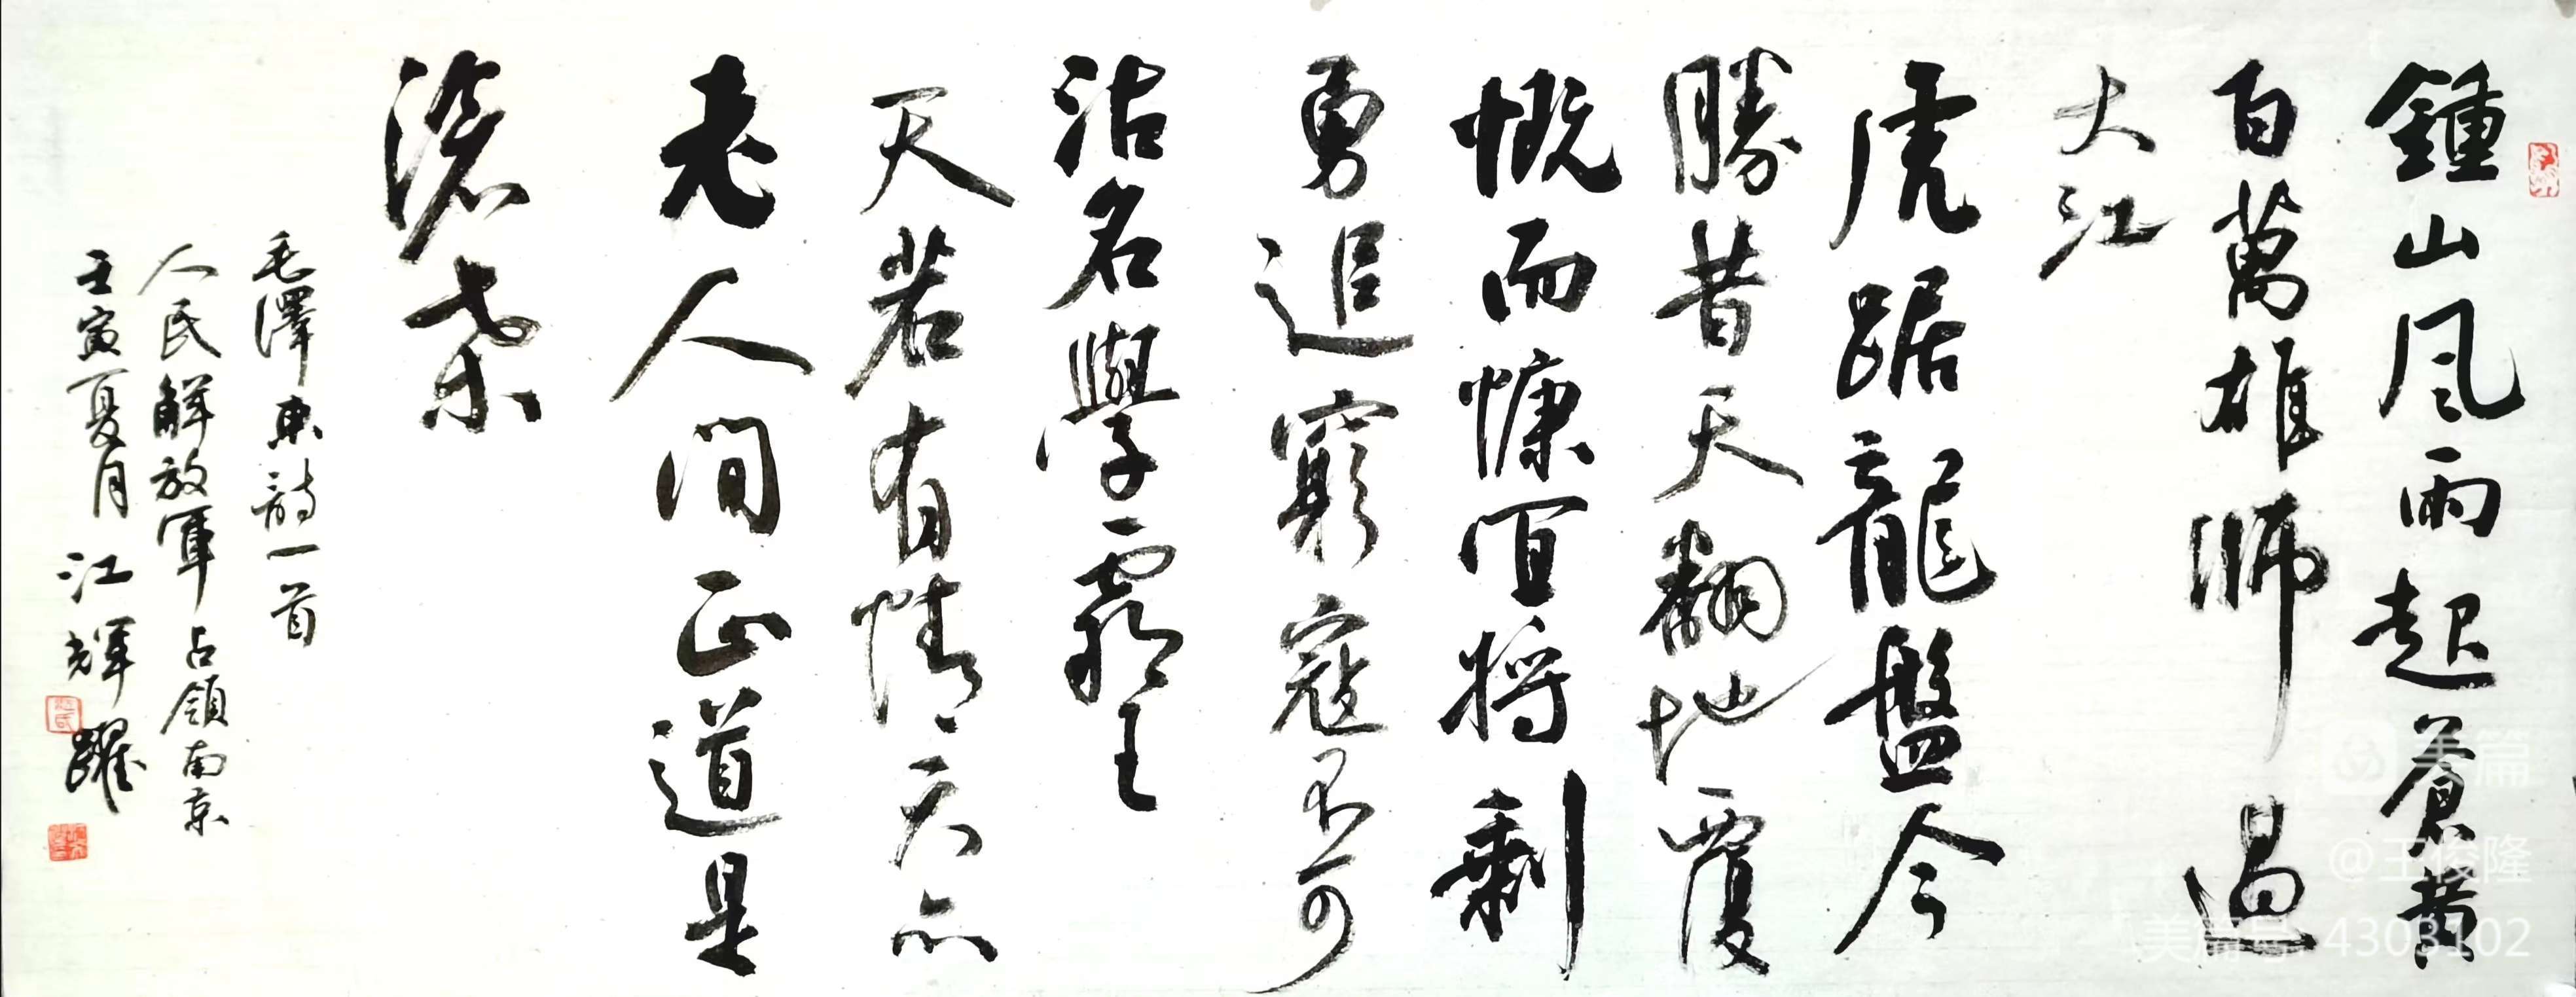 鍾山风雨起蒼黄
百萬雄師過
大江
虎踞龍盤今
勝昔天翻地覆
慨而慷宜將剩
勇追窮寇不可
沽名學霸王
天若有情天亦
老人间正道是
滄桑
毛澤東詩一首
人民解放軍占領南京
壬寅夏月 江輝躍
美篇
@王俊隆
美篇号 4303102